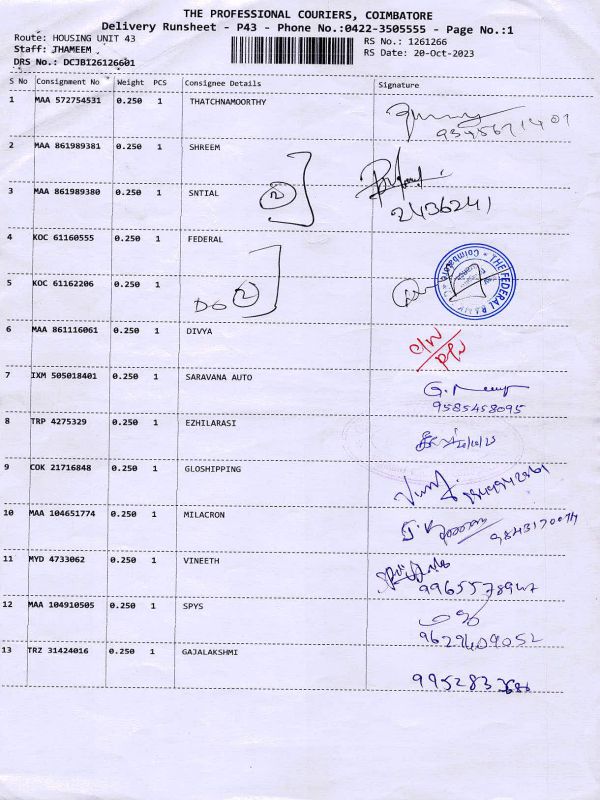 THE PROFESSIONAL COURIERS, COIMBATORE
Delivery Runsheet - P43 - Phone No.:0422-3505555 - Page No.:1
Route: HOUSING UNIT 43
RS No.: 1261266
Staff: JHAMEEM
RS Date: 20-Oct-2023
DRS No.: DCJBI26126601
S No Consignment No Weight PCS Consignee Details Signature
1 MAA 572754531 0.250 1 THATCHNAMOORTHY
9345671401
2 MAA 861989381 0.250 1 SHREEM
3 MAA 861989380 0.250 1 SNTIAL 2
2436241
4 KOC 61160555 0.250 1 FEDERAL
THE FEDERAL BANK Coimbatore
5 KOC 61162206 0.250 1 DO 2
6 MAA 861116061 0.250 1 DIVYA
7 IXM 505018401 0.250 1 SARAVANA AUTO
9585458095
8 TRP 4275329 0.250 1 EZHILARASI 20/10/23
9 COK 21716848 0.250 1 GLOSHIPPING
10 MAA 104651774 0.250 1 MILACRON
11 MYD 4733062 0.250 1 VINEETH
12 MAA 104910505 0.250 1 SPYS
9629409052
13 TRZ 31424016 0.250 1 GAJALAKSHMI